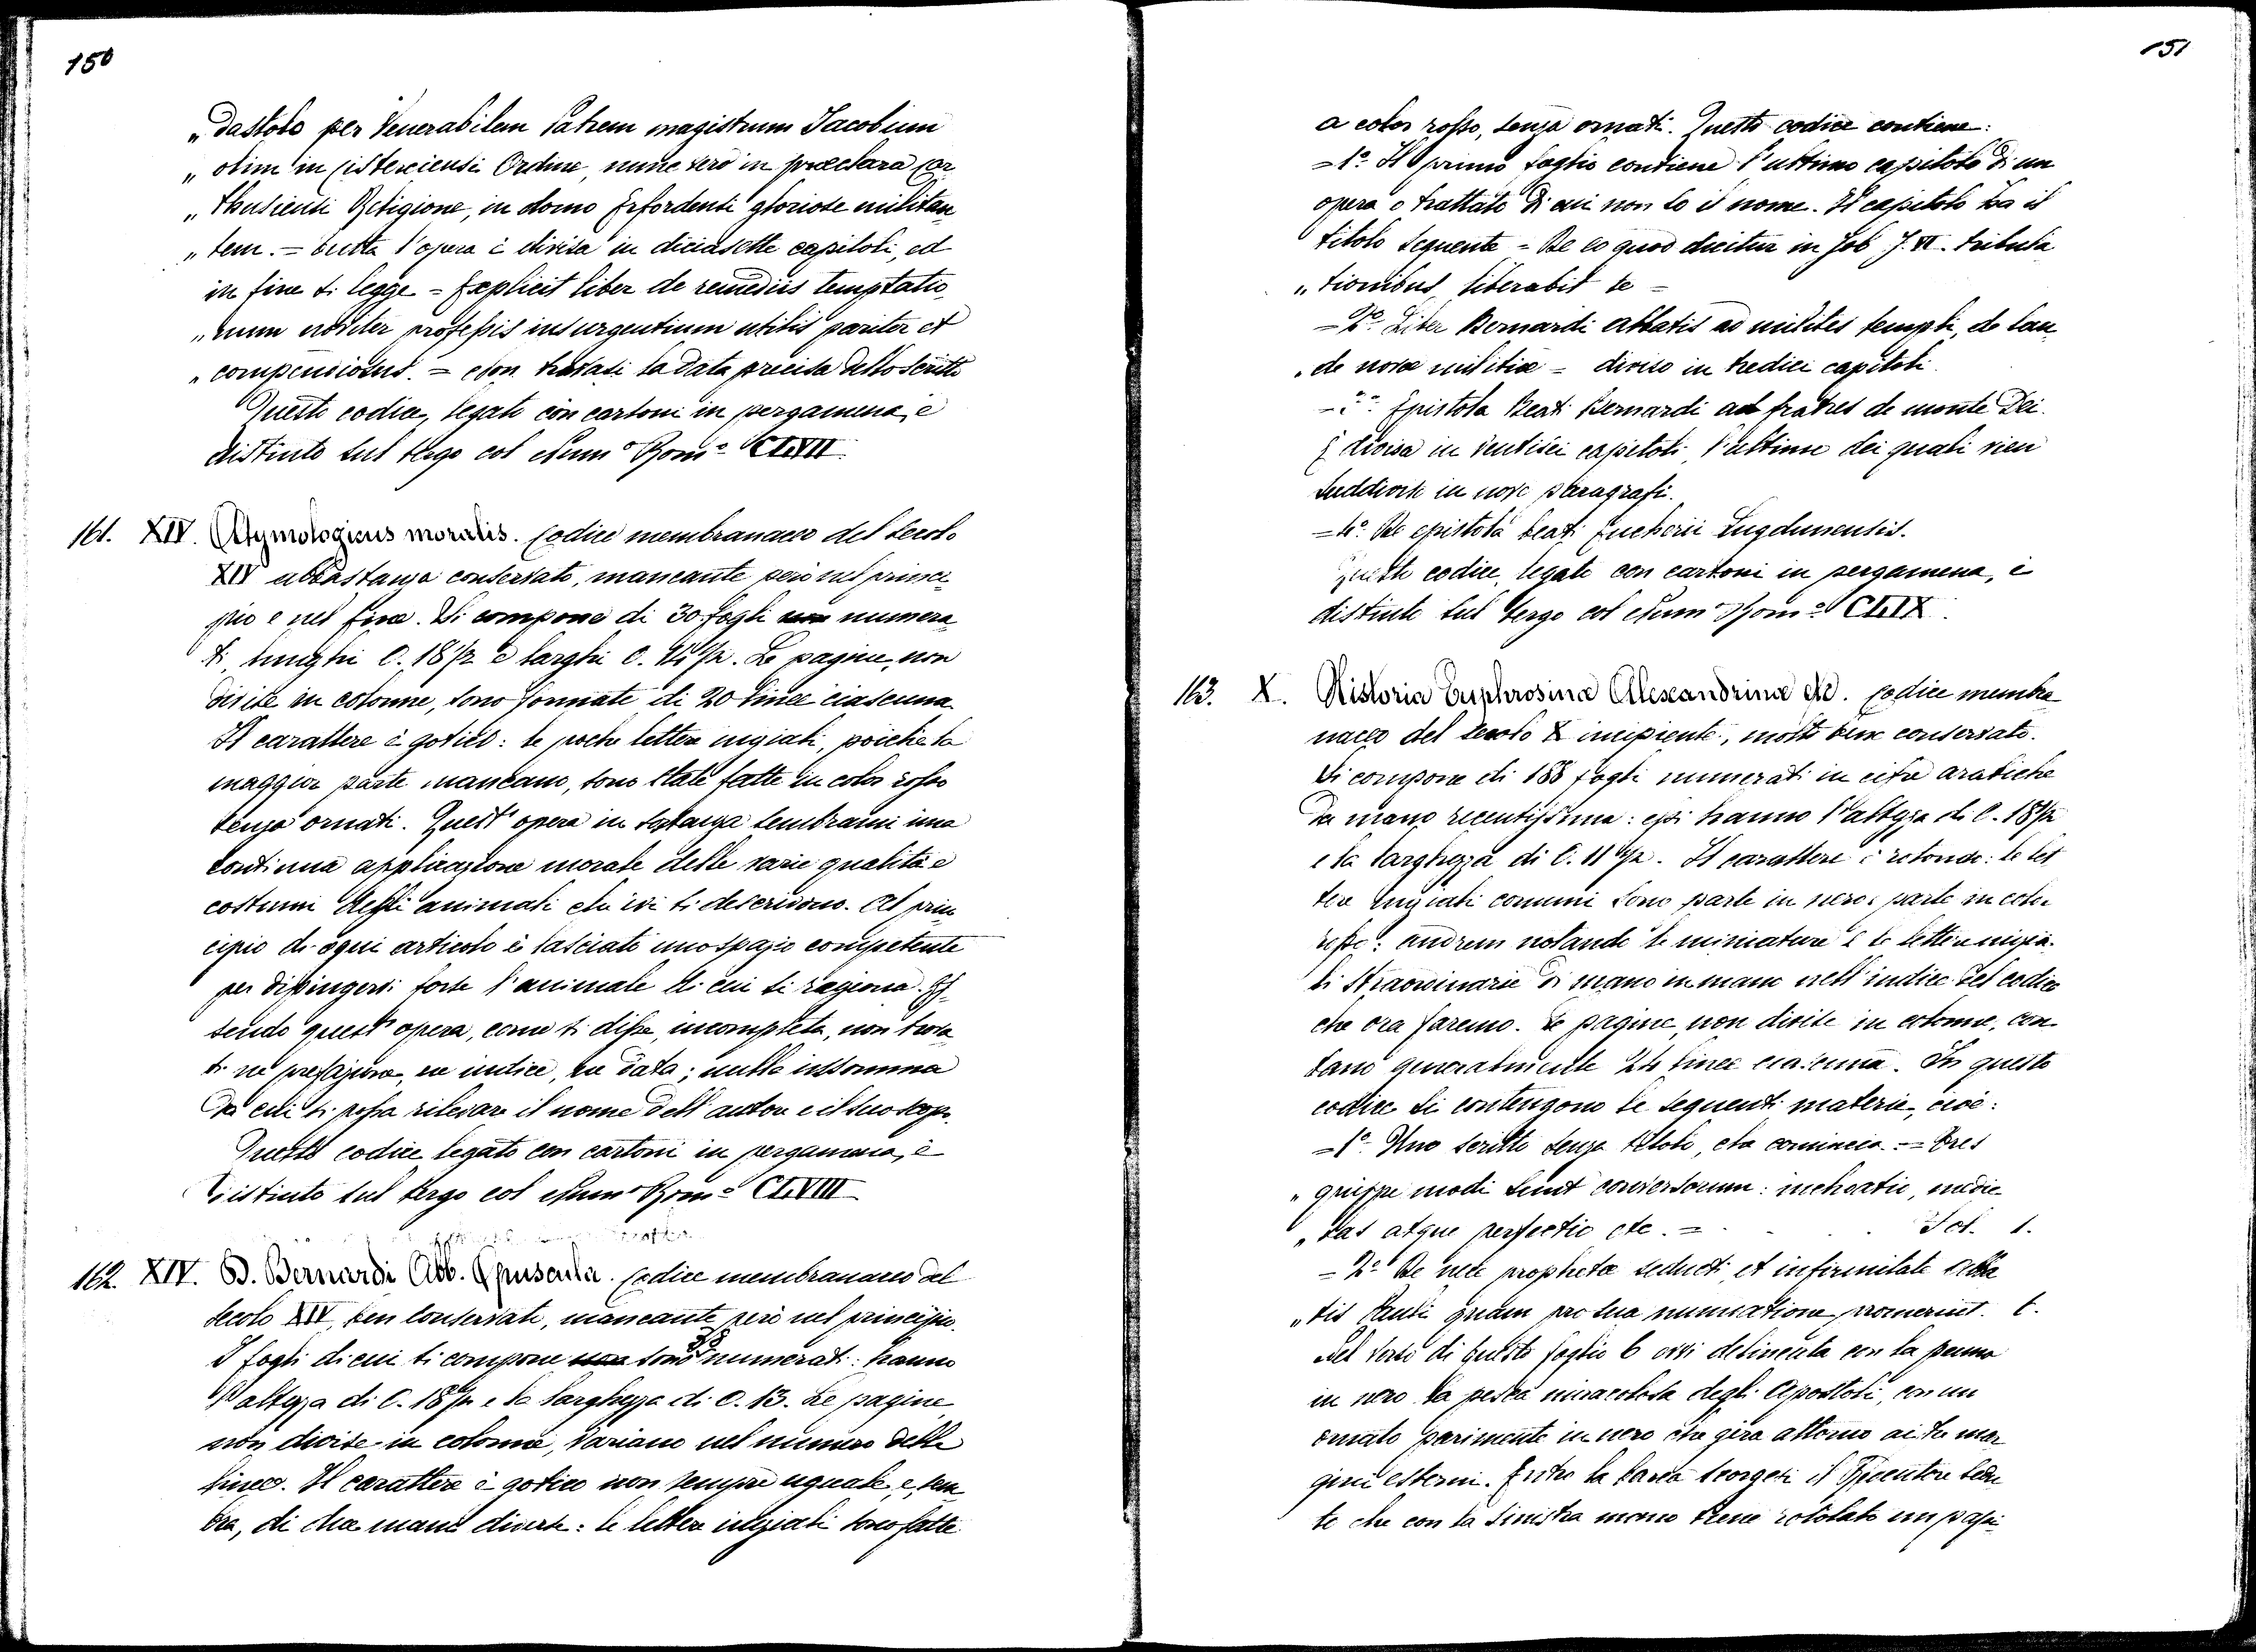 150
„ dastolo per Venerabilem Patrem magistrum Jacobum
„ olim in Cisterciensi Ordine, nunc vero in præclara Car
„ thusiensi Religione, in domo Erfordensi gloriose militan
„ tem. = Tutta l'opera è divisa in diciasette capitoli, ed
in fine si legge = Explicit liber de remediis temptatio
„ num noviter professis insurgentium utilis pariter et
„ compendiosus. = Non trovasi la data precisa dello scritto
Questo codice, legato con cartoni in pergamena, è
distinto sul tergo col Num.º Rom.º CLVII.
161. XIV. Etymologicus moralis. Codice membranaceo del secolo
XIV abbastanza conservato, mancante però nel princi
pio e nel fine. Si compone di 30 fogli non numera
ti, lunghi C. 18 1/2 e larghi C. 14 1/2. Le pagine, non
divise in colonne, sono formate di 20 linee ciascuna.
Il carattere è gotico: le poche lettere iniziali, poiche la
maggior parte mancano, sono state fatte in color rosso
senza ornati. Quest' opera in sostanza sembrami una
continua applicazione morale delle varie qualità e
costumi degli animali che ivi si descrivono. Al prin
cipio di ogni articolo è lasciato uno spazio competente
per dipingervi forse l'animale di cui si ragiona. Es
sendo quest' opera, come si disse, incompleta, non trova
si ne prefazione, ne indice, ne data; nulla insomma
da cui si possa rilevare il nome dell' autore e il suo scopo.
Questo codice legato con cartoni in pergamena, è
distinto sul tergo col Num.º Rom.º CLVIII
162. XIV. B. Bernardi Abb. Opuscula. Codice membranaceo del
secolo XIV, ben conservato, mancante però nel principio.
I fogli di cui si compone non sono 38 numerati: hanno
l'altezza di C. 18 1/2 e la larghezza di C. 13. Le pagine
non divise in colonne, variano nel numero delle
linee. Il carattere è gotico non sempre uguale, e, sem
bra, di due mani diverse: le lettere iniziali sono fatte
151
a color rosso, senza ornati. Questo codice contiene:
= 1.º Il primo foglio contiene l'ultimo capitolo di un
opera o trattato di cui non so il nome. Il capitolo ha il
titolo seguente = De eo quod dicitur in Job J. VI. tribula
„ tionibus liberabit te =
= 2.º Liber Bernardi Abbatis ad milites templi, de lau
„ de novæ militiæ = diviso in tredici capitoli.
= Epistola Beati Bernardi ad fratres de monte Dei.
È divisa in ventisei capitoli, l'ultimo dei quali vien
suddiviso in nove paragrafi.
= 4.º De epistola beati Eucherii Lugdunensis.
Questo codice, legato con cartoni in pergamena, è
distinto sul tergo col Num.º Rom.º CLIX.
163. X. Historia Euphrosinæ Alexandrinæ etc. Codice membra
naceo del secolo X incipiente, molto bene conservato.
Si compone di 188 fogli numerati in cifre arabiche
da mano recentissima: essi hanno l'altezza di C. 18 1/2
e la larghezza di C. 11 1/2. Il carattere è rotondo: le let
tere iniziali comuni sono parte in nero e parte in color
rosso: andrem notando le miniature e le lettere inizia
li straordinarie di mano in mano nell' indice del codice
che ora faremo. Le pagine, non divise in colonne, con
tano generalmente 24 linee ciascuna. In questo
codice si contengono le seguenti materie, cioè:
= 1.º Uno scritto senza titolo, che comincia: = Tres
„ quippe modi sunt conversorum: inchoatio, medie
„ tas atque perfectio etc. = Fol. 1.
= 2.º De nece prophetæ seducti et infirmitate Abba
„ tis Pauli quam pro sua promeruit. 6.
Nel verso di questo foglio 6 evvi delineata con la penna
in nero la pesca miracolosa degli Apostoli, con un
ornato parimente in nero che gira attorno ai tre mar
gini esterni. Entro la barca scorgesi il Redentore sedu
to che con la sinistra mano tiene rotolato un papi